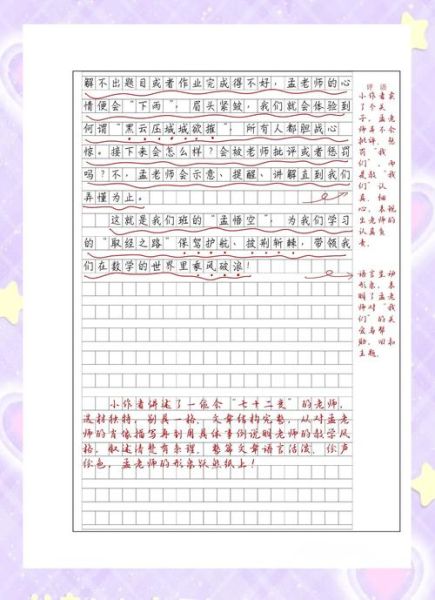 解不出题目或者作业完成得不好，孟老师的心
情便会“下雨”，眉头紧皱，我们就会体验到
何谓“黑云压城城欲摧”，所有人都胆战心
惊。接下来会怎么样？会被老师批评或者惩罚
吗？不，孟老师会示意、提醒、讲解直到我们
弄懂为止。
这就是我们班的“孟悟空”，为我们学习
的“取经之路”保驾护航、披荆斩棘，带领我
们在数学的世界里乘风破浪！
评 语
小作者卖
了个关
子，孟老
师并不会
批评、惩
罚“我
们”，而
是教“我
们”认
真、细
心，表现
出老师的
认真负
责。
语言生动
形象，表
明了孟老
师对“我
们”的关
爱与帮
助，回扣
主题。
小作者讲述了一位会“七十二变”的老师，
选材独特，别具一格。文章结构完整，从对孟老
师的肖像描写再到用具体事例说明老师的教学风
格，叙述清楚有条理。整篇文章语言活泼、绘声
绘色，孟老师的形象跃然纸上！